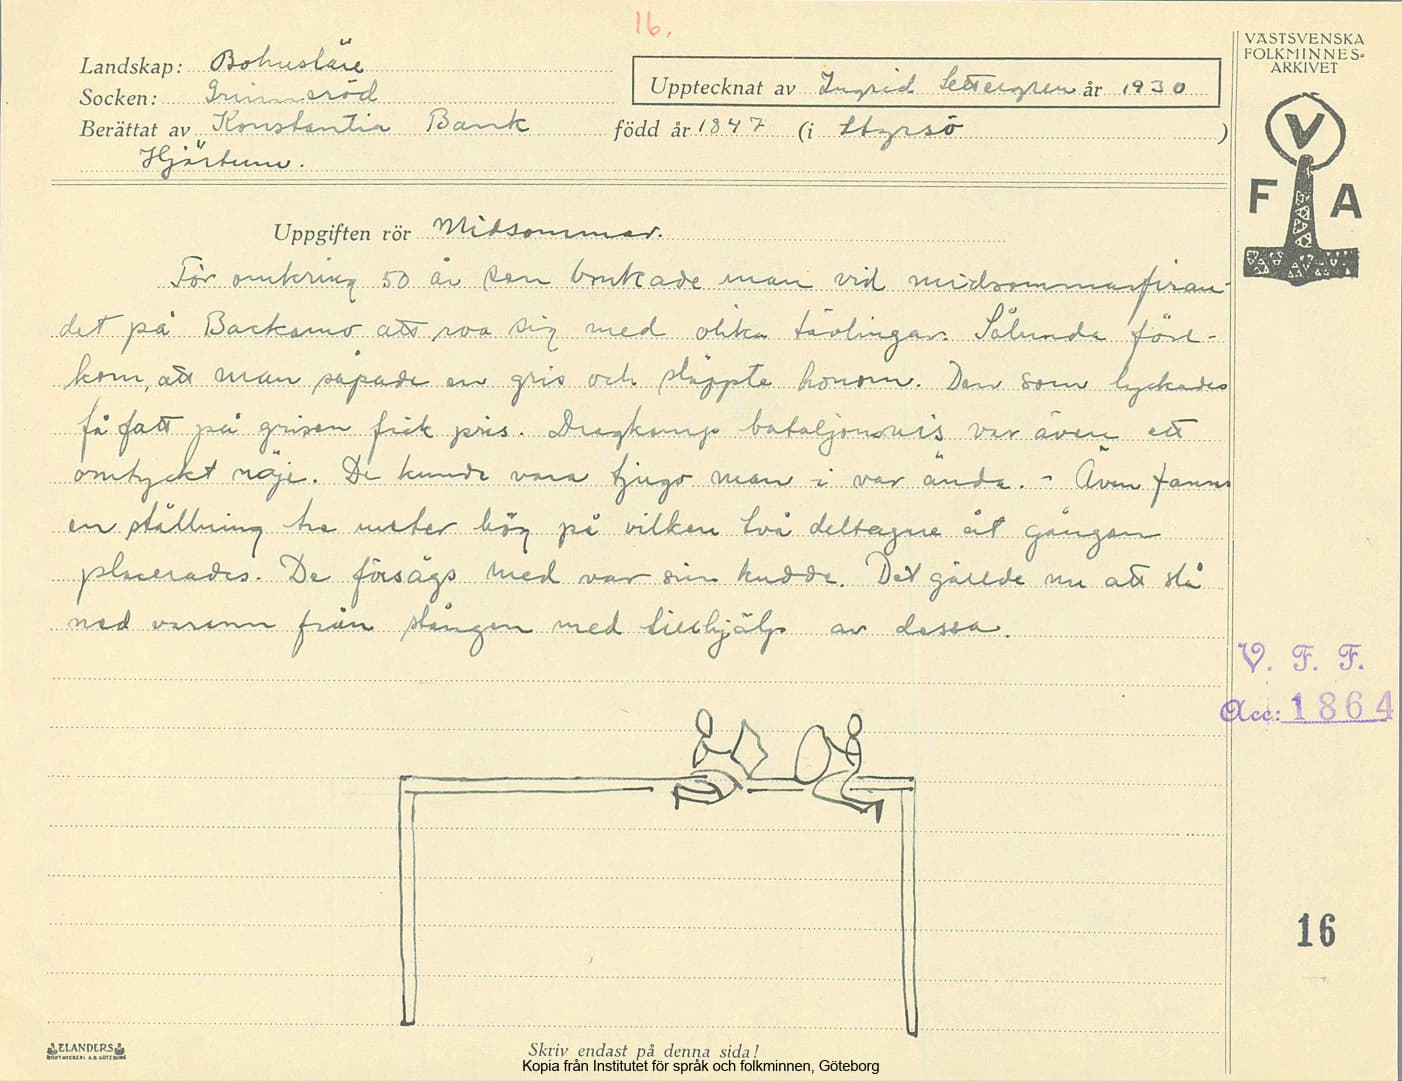 16.
Landskap: Bohuslän
Socken: Grinneröd
Upptecknat av Ingrid Settergren år 1930
Berättat av Konstantia Bank född år 1847 (i Styrsö )
Hjärtum.
VÄSTSVENSKA
FOLKMINNES-
ARKIVET
V
F A
Uppgiften rör Midsommar.
För omkring 50 år sen brukade man vid midsommarfiran-
det på Backamo att roa sig med olika tävlingar. Sålunda före-
kom, att man såpade en gris och släppte honom. Den som lyckades
få fatt på grisen fick pris. Dragkamp bataljonsvis var även ett
omtyckt nöje. De kunde vara tjugo man i var ända. - Även fanns
en ställning tre meter hög på vilken två deltagne åt gången
placerades. De försågs med var sin kudde. Det gällde nu att slå
ned varann från stången med tillhjälp av dessa.
V. F. F.
Acc: 1864
16
ELANDERS
BOKTRYCKERI A.B. GÖTEBORG
Skriv endast på denna sida!
Kopia från Institutet för språk och folkminnen, Göteborg